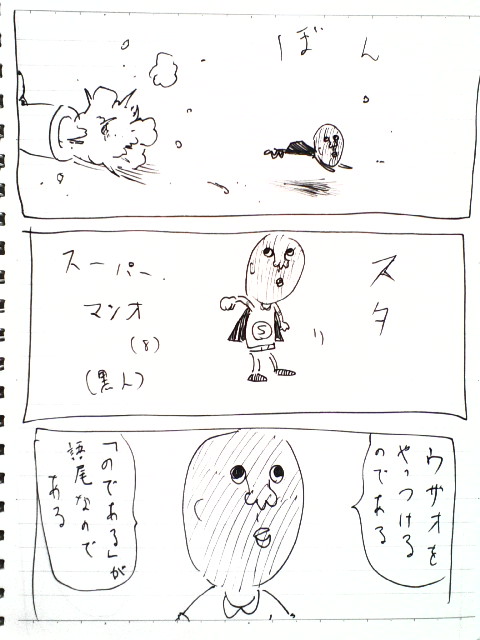 ぼん
スタ
スーパー
マンオ
(8)
(黒人)
S
ウサオを
やっつける
のである
「のである」が
語尾なので
ある